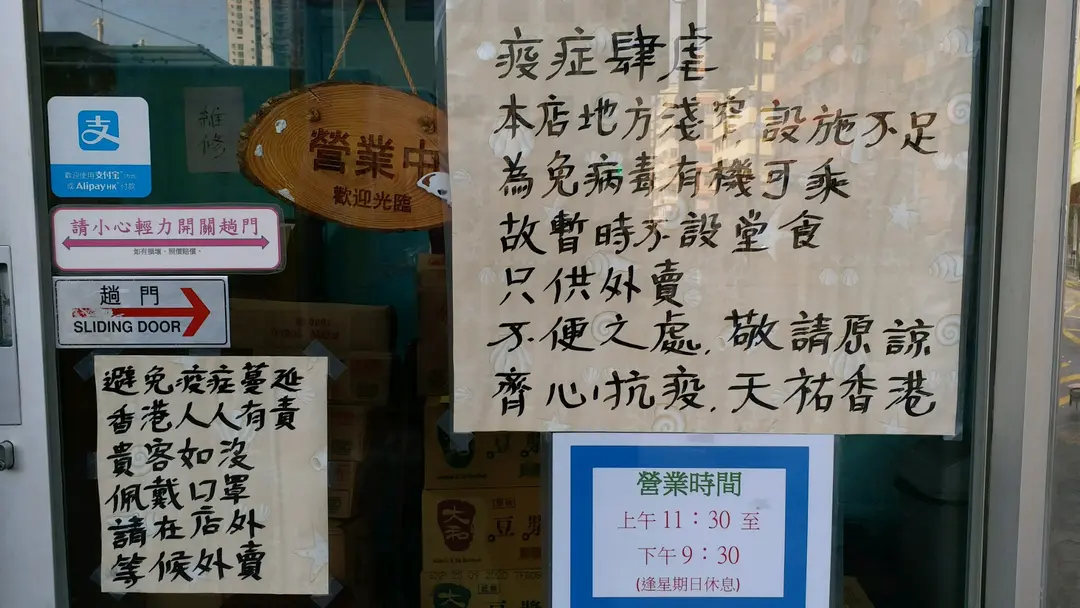 疫症肆虐
本店地方淺窄,設施不足
為免病毒有機可乘
故暫時不設堂食
只供外賣
不便之處,敬請原諒
齊心抗疫,天祐香港
營業中
歡迎光臨
維修
支
歡迎使用支付宝
或 AlipayHK 付款
請小心輕力開關趟門
如有損壞、照價賠償。
趟門
SLIDING DOOR
避免疫症蔓延
香港人人有責
貴客如沒
佩戴口罩
請在店外
等候外賣
營業時間
上午 11：30 至
下午 9：30
(逢星期日休息)
大和
豆漿
豆漿